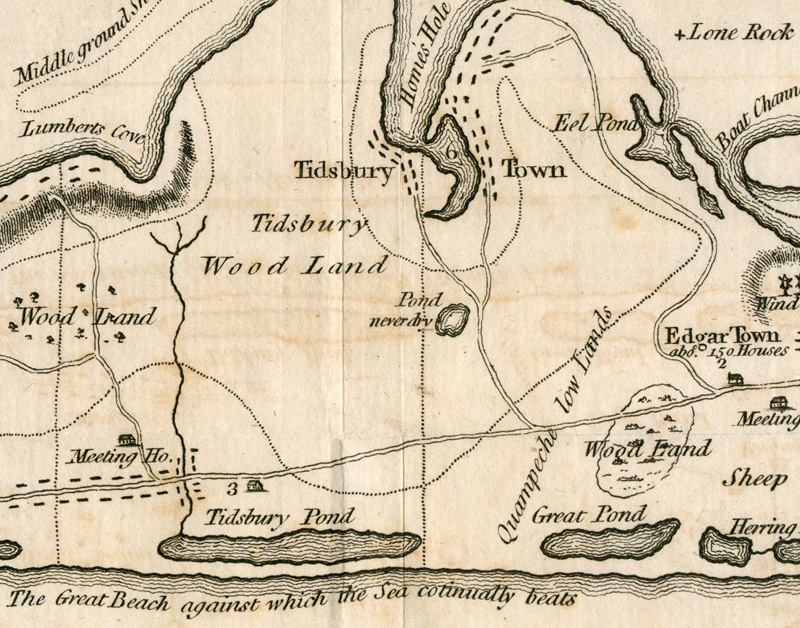 Middle ground
Homes Hole
+Lone Rock
Lumberts Cove
Eel Pond
Boat
6
Tidsbury Town
Tidsbury
Wood Land
Pond
never dry
Wood Land
Wind
Edgar Town
abt. 150 Houses
2
Quampeche low Lands
Meeting
Meeting Ho.
Wood Land
3
Sheep
Tidsbury Pond
Great Pond
Herring
The Great Beach against which the Sea cotinually beats